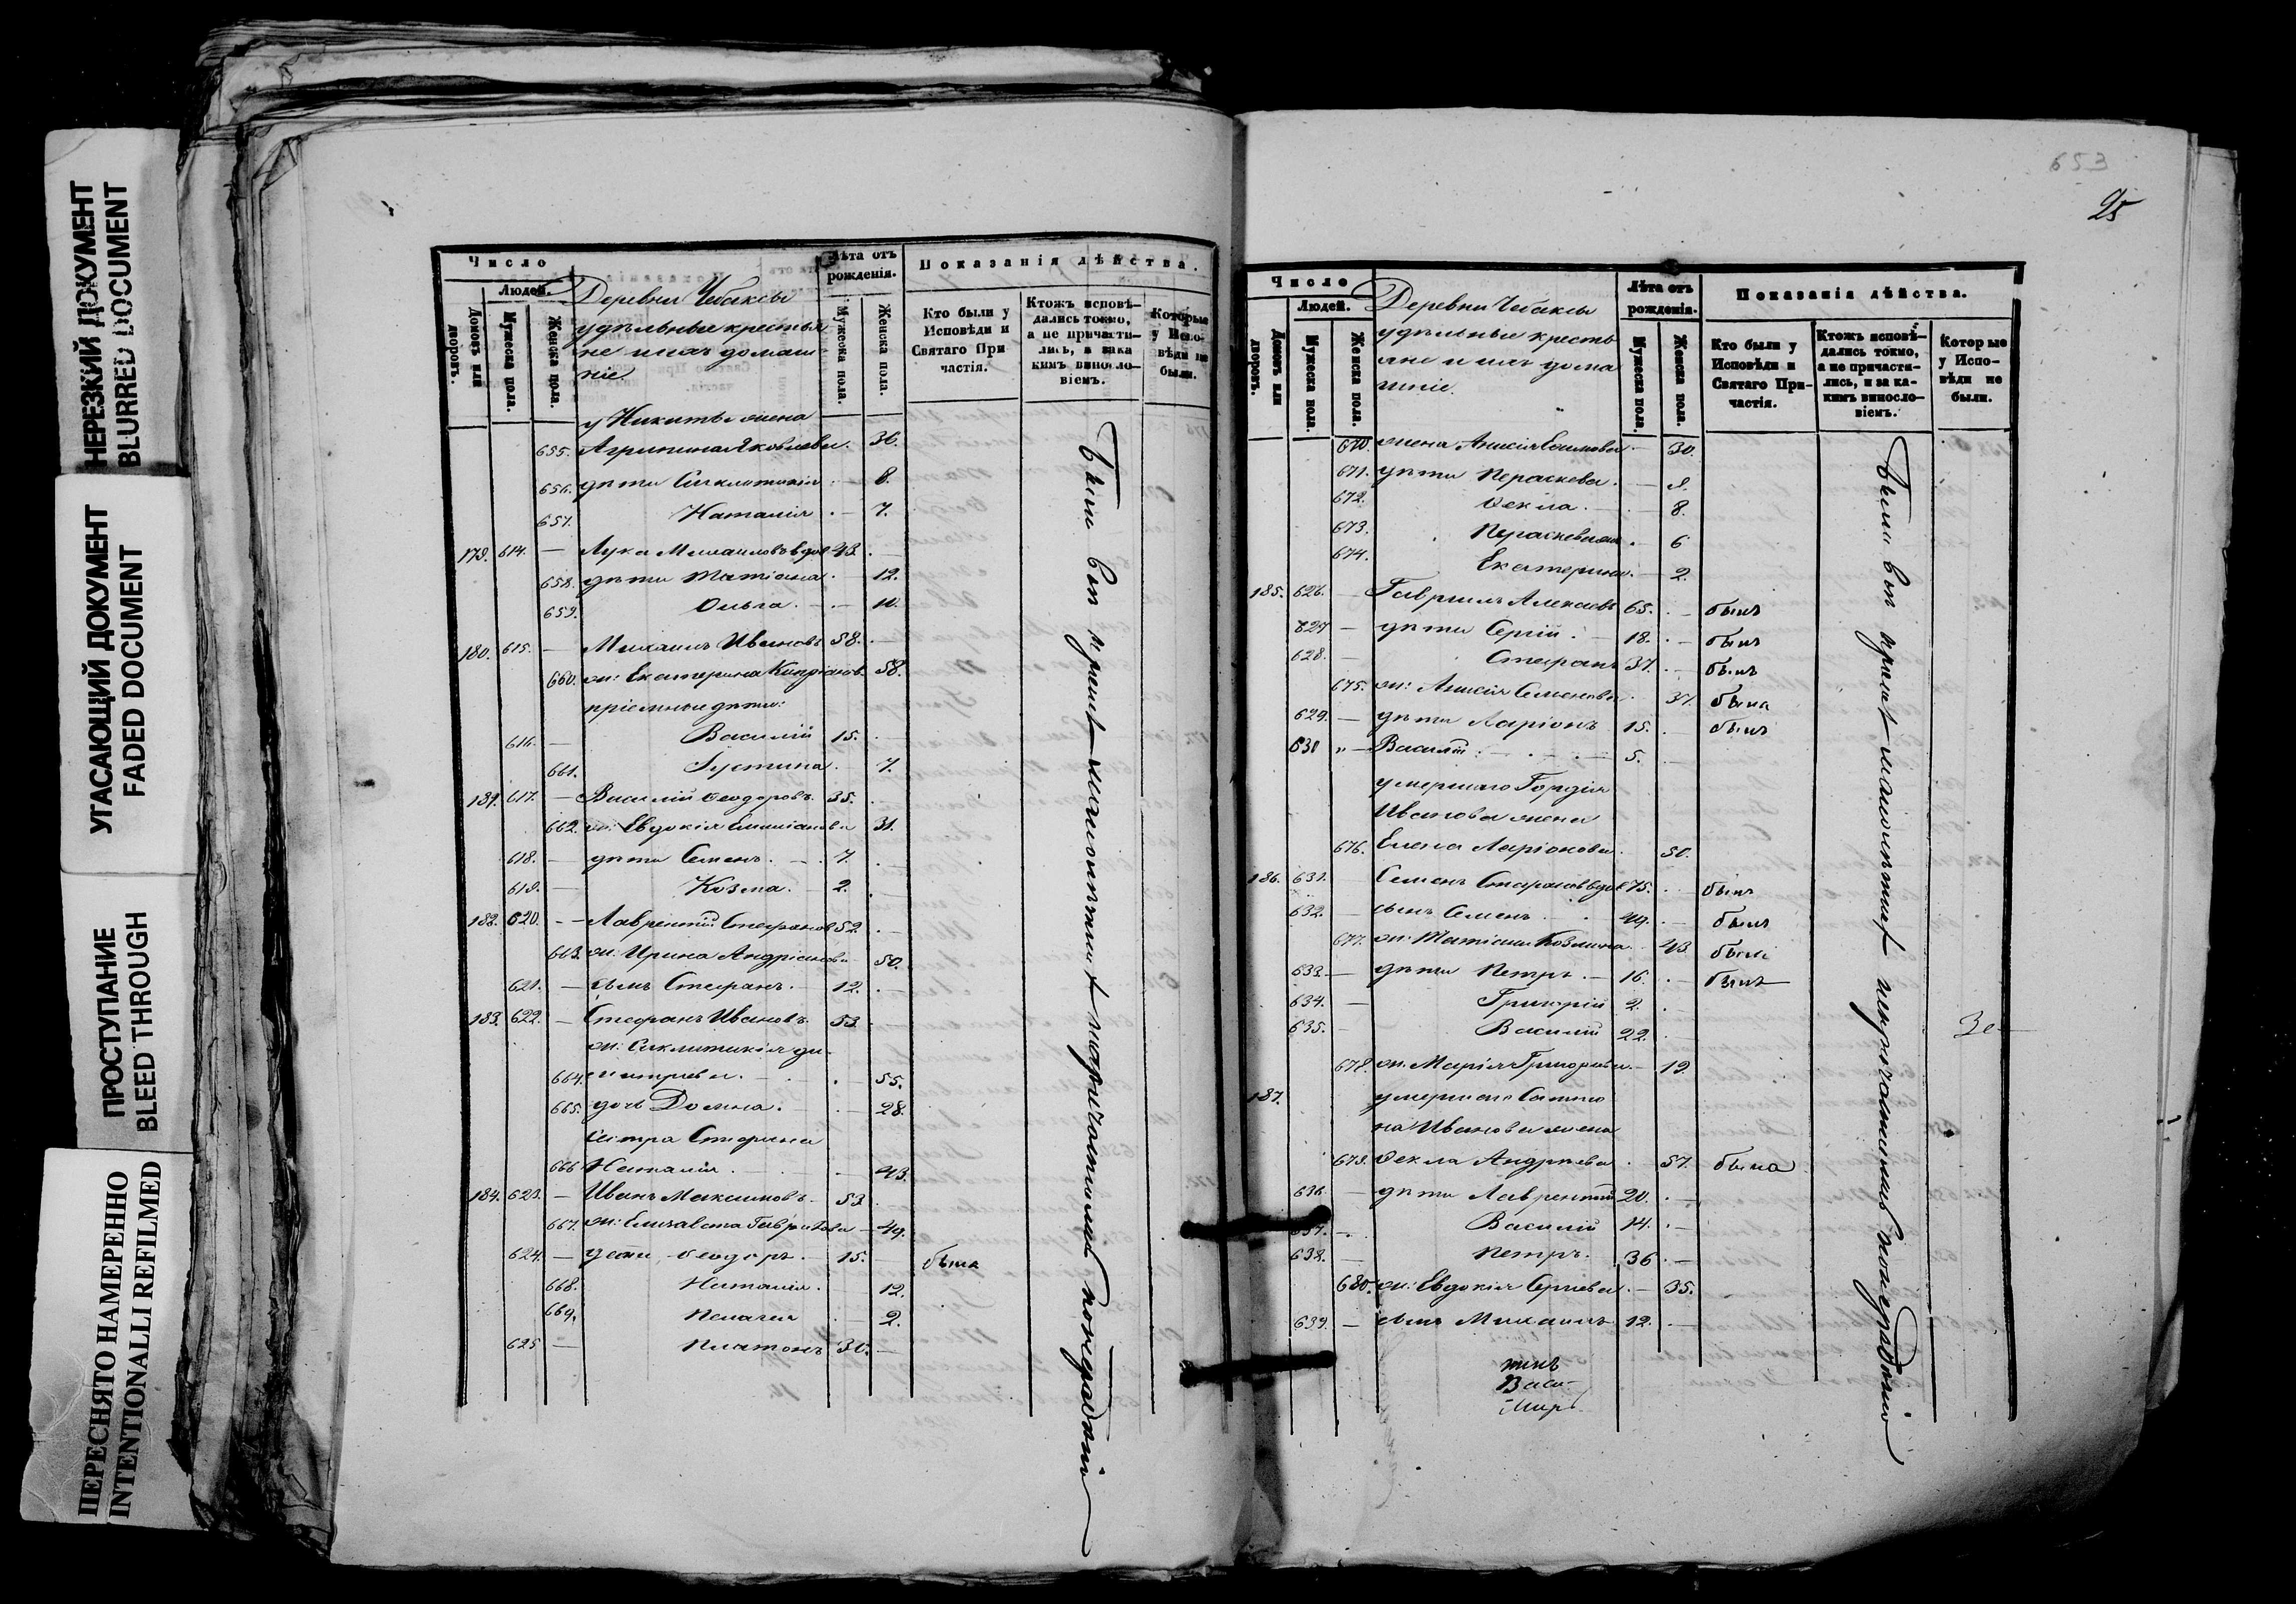 НЕРЕЗКИЙ ДОКУМЕНТ
BLURRED DOCUMENT
УГАСАЮЩИЙ ДОКУМЕНТ
FADED DOCUMENT
ПРОСТУПАНИЕ
BLEED THROUGH
ПЕРЕСНЯТО НАМЕРЕННО
INTENTIONALLI REFILMED
Число
Людей.
Домовъ или дворовъ.
Мужеска пола.
Женска пола.
Деревни Чебаксы
удѣльные крестья
не и ихъ домаш-
ніе
Лѣта отъ рожденія.
Мужеска пола.
Женска пола.
Показанія дѣйства.
Кто были у Исповѣди и Святаго При частія.
Ктожъ исповѣ-
дались токмо,
а не причасти-
лись, и зака
кимъ виносло-
віемъ.
Которые
у Испо-
вѣди не
были.
у Никиты жена
655. Агрипина Яковлева. 36.
656. дѣти Синклитикія 8.
657. Наталія 7.
179. 614. — Лука Михаиловъ вдов 43.
658. дѣти Татіана. 12.
659. Ольга. 10.
180. 615. — Михаилъ Ивановъ 58.
660. ж: Екатерина Кипріанов. 58.
пріемные дѣти:
616. — Василій 15.
661. Іустина. 7.
181. 617. — Василій Ѳеодоровъ. 35.
662. ж: Евдокія Емиліанова 31.
618. — дѣти Семенъ. 7.
619. — Козма. 2.
182. 620. — Лаврентій Стефановъ 52.
663. ж: Ирина Андріанова 50.
621. — сынъ Стефанъ. 12.
183. 622. — Стефанъ Ивановъ. 53.
ж: Синклитикія ди-
664. митріева. 55.
665. дочь Домна. 28.
сестра Стефана
666. Наталія. 43.
184. 623. — Иванъ Максимовъ. 53.
667. ж: Елизавета Гаврилова 49.
624. — дѣти Ѳеодоръ. 15. былъ
668. Наталія. 12.
669. Пелагея 2.
625 — Платонъ 30.
Были всѣ кромѣ малолѣтнихъ
653
25
Число
Людей.
Домовъ или дворовъ.
Мужеска пола.
Женска пола.
Деревни Чебаксы
удѣльные кресть
яне и ихъ дома
шніе.
Лѣта отъ рожденія.
Мужеска пола.
Женска пола.
Показанія дѣйства.
Кто были у Исповѣди и Святаго При-
частія.
Ктожъ исповѣ-
дались токмо,
а не причасти-
лись, и за ка-
кимъ виносло-
віемъ.
Которые
у Испо-
вѣди не
были.
670. жена Анисія Ефимова 30.
671. дѣти Параскева.
672. Ѳекла. 8.
673. 6
674. Екатерина. 2.
185. 626. — Гавриилъ Алексѣевъ 65. былъ
627 — дѣти Сергій. 18. былъ
628. — Стефанъ 37. былъ
675. ж: Анисія Семенова 37. была
629. — дѣти Ларіонъ 15. былъ
630 „ — Василій 5.
умершаго Гордія
Иванова жена
676. Елена Ларіонова. 50.
186. 631. Семенъ Стефановъ вдов 75. былъ
632. — сынъ Семенъ 49. былъ
677. ж: Татіана Козмина. 43. была
633. — дѣти Петръ. 16. былъ
634. — Григорій 2.
635. — Василій 22.
678. ж. Марія Григорьева 19
187. умершаго
на Иванова жена
679. Ѳекла Андреева 57. была
636. — дѣти Лаврентій 20.
637. — Василій 14.
638. — Петръ. 36
680. ж: Евдокія Сергѣева 35.
639. — сынъ Михаилъ 12.
Были всѣ кромѣ малолѣтнихъ